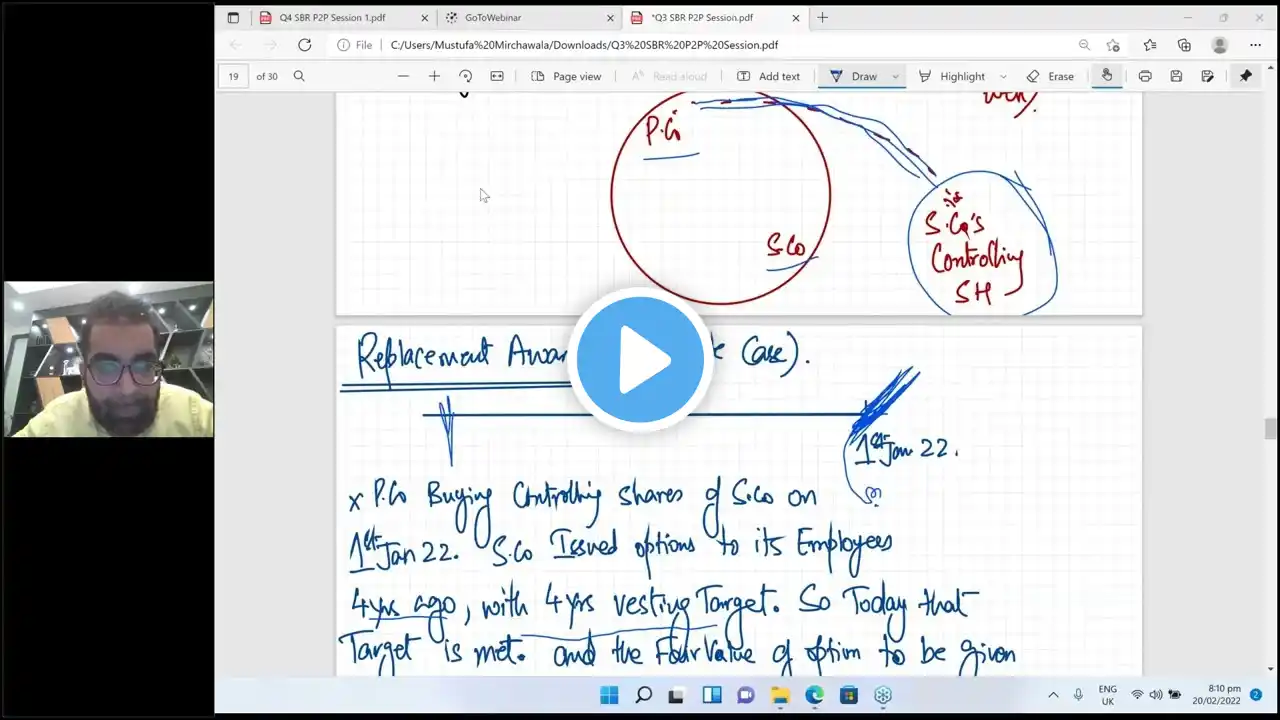 Q4 SBR P2P Session 1.pdf
GoToWebinar
*Q3 SBR P2P Session.pdf
File
C:/Users/Mustufa%20Mirchawala/Downloads/Q3%20SBR%20P2P%20Session.pdf
19 of 30
Page view
Read aloud
Add text
Draw
Highlight
Erase
P.Co
S.Co
S.Co's
Controlling
SH
Replacement Case).
1st Jan 22.
x P.Co Buying Controlling shares of S.Co on
1st Jan 22. S.Co Issued options to its Employees
4yrs ago, with 4 yrs vesting Target. So Today that
Target is met. and the Fair Value of option to be given
ENG
UK
8:10 pm
20/02/2022
2